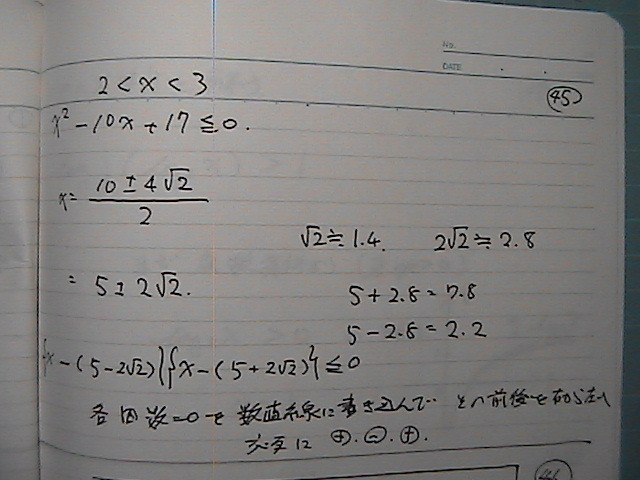 NO.
DATE
2 < x < 3
㊺
x² - 10x + 17 ≦ 0.
x = (10 ± 4√2)/2
√2 ≒ 1.4. 2√2 ≒ 2.8
= 5 ± 2√2.
5 + 2.8 = 7.8
5 - 2.8 = 2.2
{x - (5 - 2√2)}{x - (5 + 2√2)} ≦ 0
各因数=0を数直線に書き込んで… その前後を右から左へ
交互に ⊕.⊖.⊕.